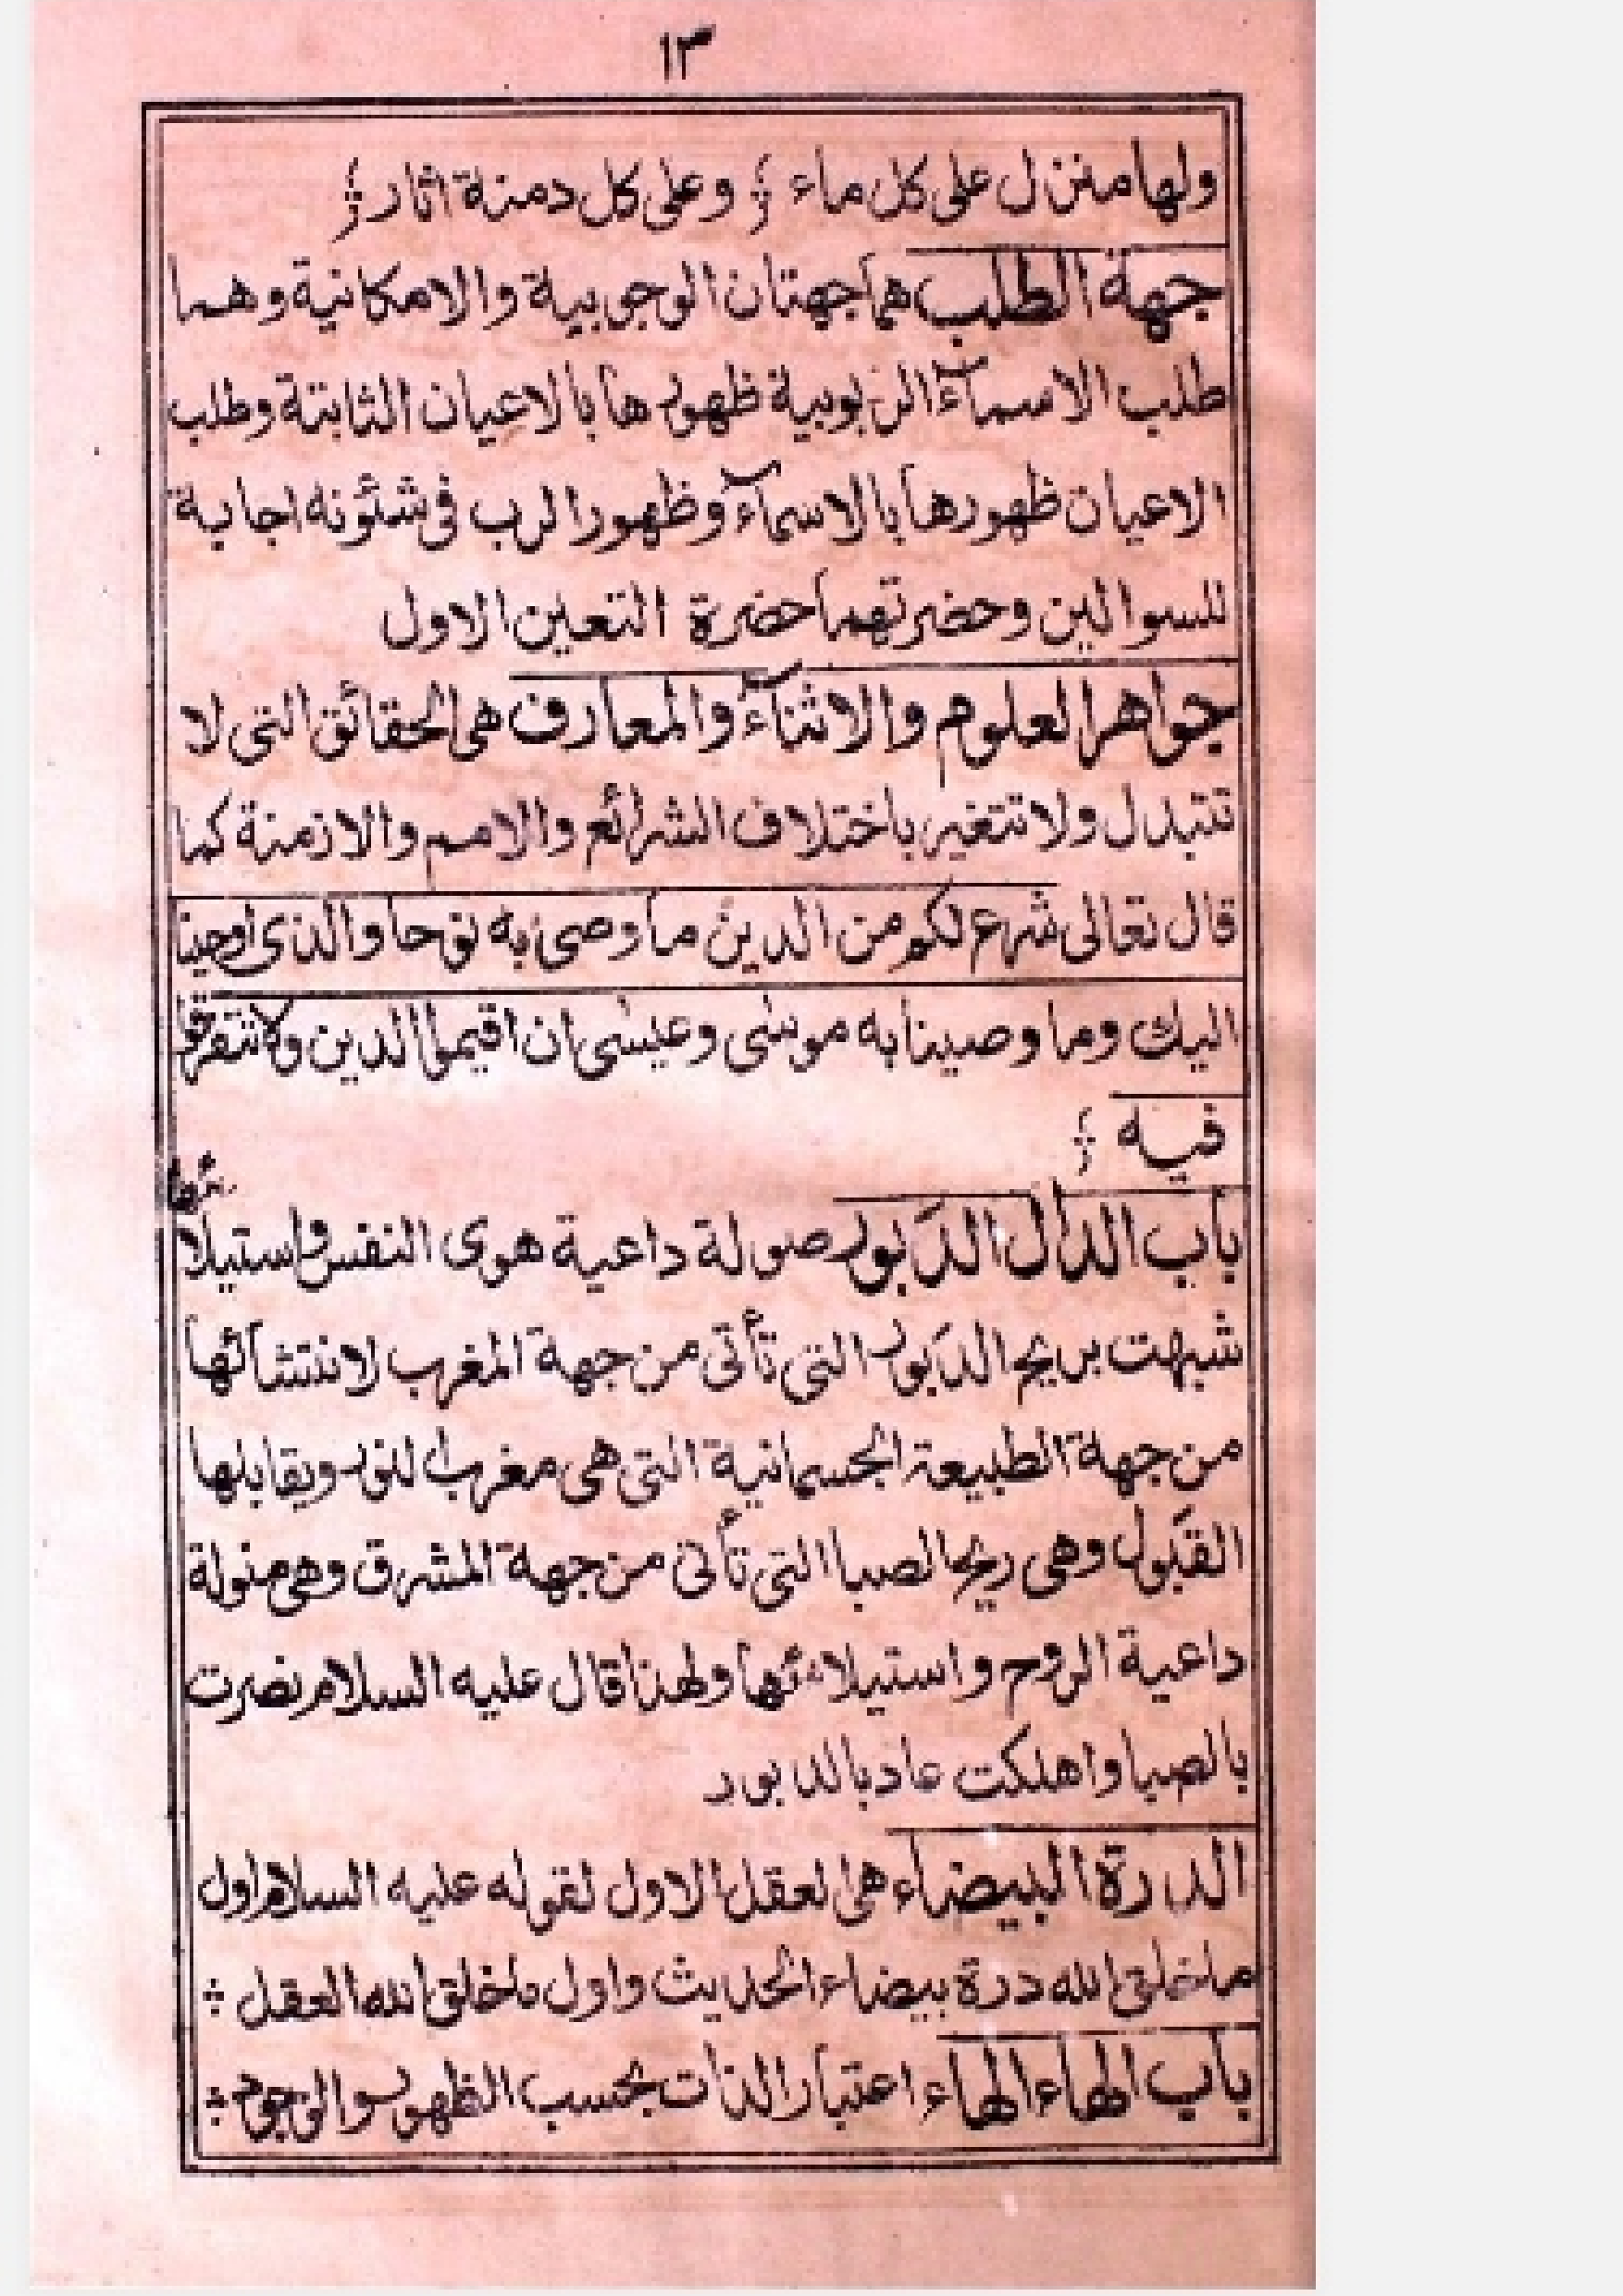 ١٣
ولها منزل على كل ماء ؛ وعلى كل دمنة اثار ؛
جهة الطلب هما جهتان الوجوبية والامكانية وهما
طلب الاسمآء الربوبية ظهورها بالاعيان الثابتة وطلب
الاعيان ظهورها بالاسمآء وظهور الرب فى شئونه اجابة
للسوالين وحضرتهما حضرة التعين الاول
جواهر العلوم والاثنآء والمعارف هى الحقائق التى لا
تتبدل ولا تتغير باختلاف الشرائع والامم والازمنة كما
قال تعالى شرع لكم من الدين ما وصى به نوحا والذى اوحينا
اليك وما وصينا به موسى وعيسى ان اقيموا الدين ولا تتفرقوا
فيه ؛
باب الدال الدَبور صولة داعية هوى النفس واستيلائها
شبهت بريح الدَبور التى تأتى من جهة المغرب لانتشائها
من جهة الطبيعة الجسمانية التى هى مغرب النور ويقابلها
القَبول وهى ريح الصبا التى تأتى من جهة المشرق وهى صولة
داعية الروح واستيلائها ولهذا قال عليه السلام نصرت
بالصبا واهلكت عاد بالدبور
الدرة البيضاء هى العقل الاول لقوله عليه السلام اول
ما خلق الله درة بيضاء الحديث واول ما خلق الله العقل ؛
باب الهاء الهاء اعتبار الذات بحسب الظهور والوجود ؛